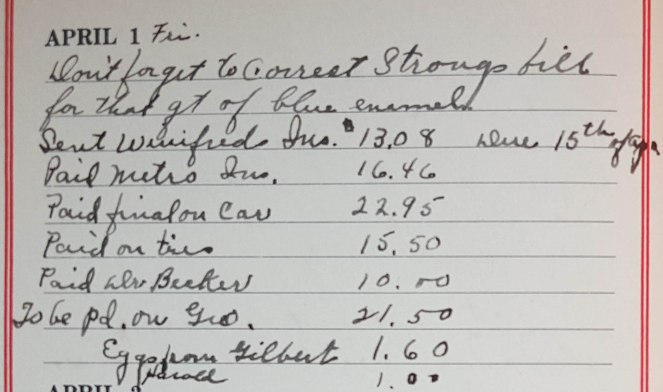 APRIL 1 Fri.
Don't forget to Correct Strongs bill
for that qt of blue enamel.
Sent Winifreds Ins. $13.08 due 15th of Apr
Paid Metro Ins. 16.46
Paid final on Car 22.95
Paid on tires 15.50
Paid Dr Becker 10.00
To be pd. on Gro. 21.50
Eggs from Gilbert 1.60
Harold 1.00
APRIL 2